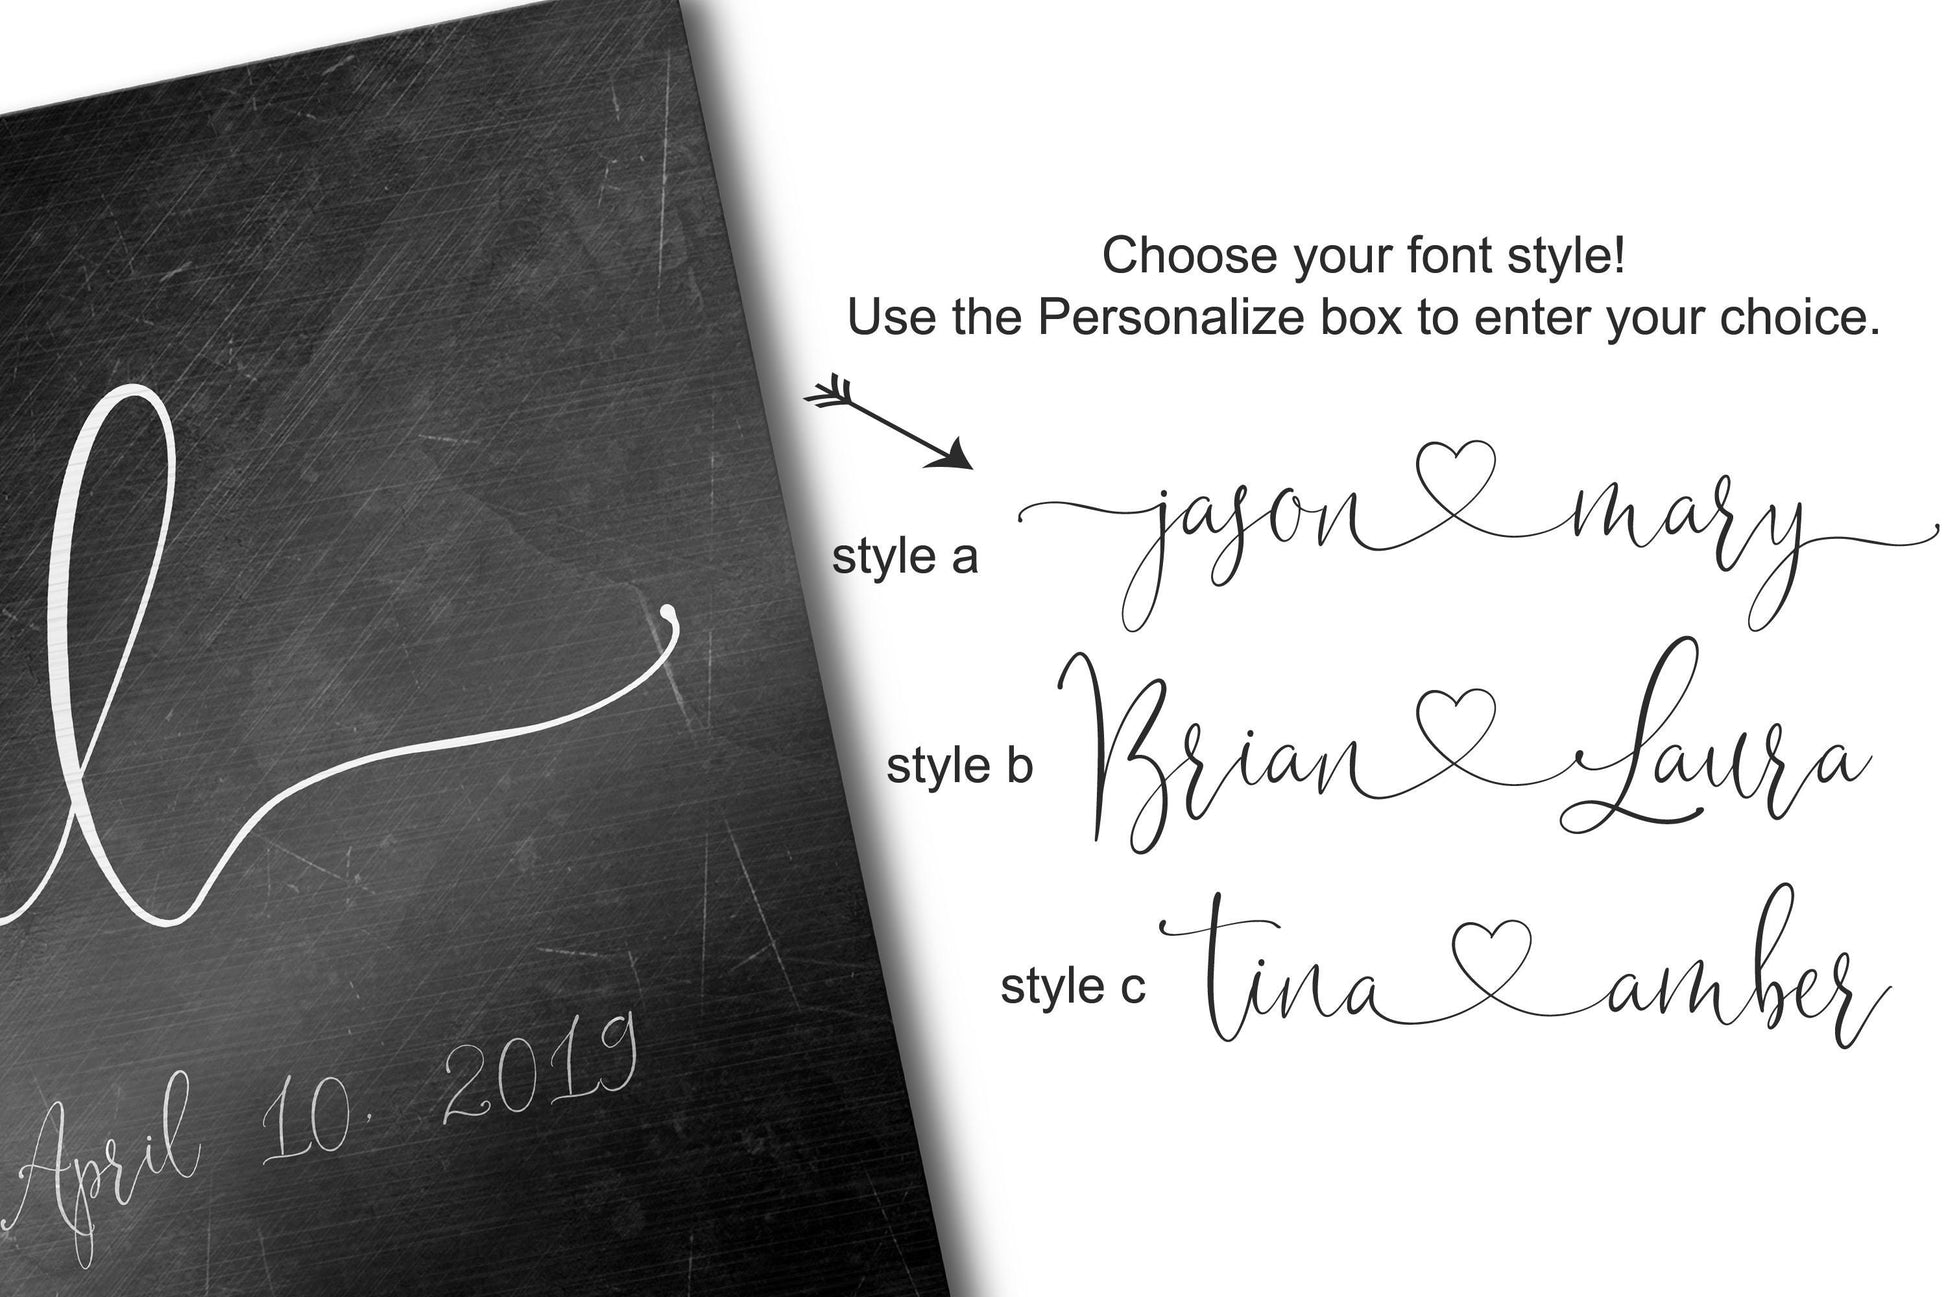 Choose your font style!
Use the Personalize box to enter your choice.
style a
jason mary
style b
Brian Laura
style c
tina amber
l
April 10, 2019